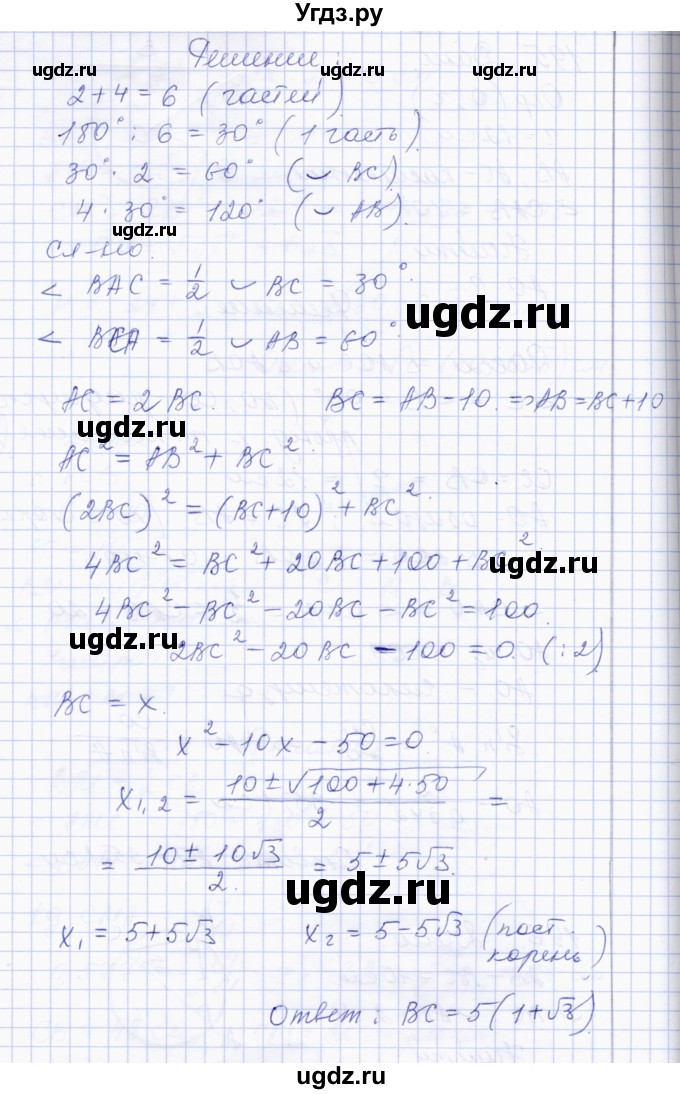 Угдз.ру
Решение:
ugdz.ru ugdz.ru
2+4=6 (частей)
180°: 6 = 30° (1 часть)
30°· 2 = 60° (◡ BC)
4 · 30° = 120° (◡ AB).
ugdz.ru
сл-но.
< BAC = 1/2 ◡ BC = 30°.
ugdz.ru
< BCA = 1/2 ◡ AB = 60°.
AC = 2 BC. BC = AB-10. =>AB=BC+10
ugdz.ru
AC² = AB² + BC².
(2BC)² = (BC+10)² + BC².
4BC² = BC² + 20BC + 100 + BC²
ugdz.ru
4BC² - BC² - 20BC - BC² = 100.
ugdz.ru
2BC² - 20BC - 100 = 0. (:2)
BC = x.
x² - 10x - 50 = 0.
x1,2 = (10 ± √100 + 4·50)/2 =
= (10 ± 10√3)/2. = 5 ± 5√3.
ugdz.ru
x1 = 5+5√3 x2 = 5-5√3 (пост. корень)
Ответ: BC = 5(1+√3).
ugdz.ru
ugdz.ru